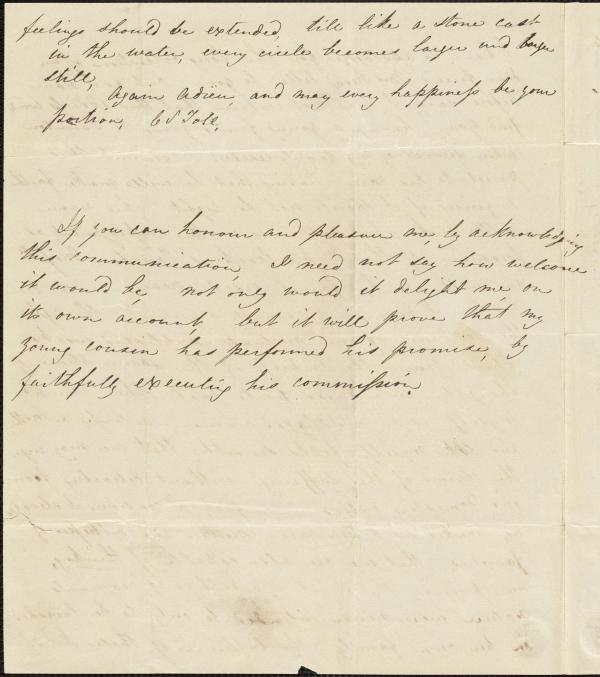 feelings should be extended, till like a stone cast
in the water, every circle becomes larger and larger
still,
Again adieu, and may every happiness be your
portion, E S Toll,
If you can honour and pleasure me, by acknowledging
this communication, I need not say how welcome
it would be, not only would it delight me on
its own account, but it will prove that my
young cousin has performed his promise, by
faithfully executing his commission.